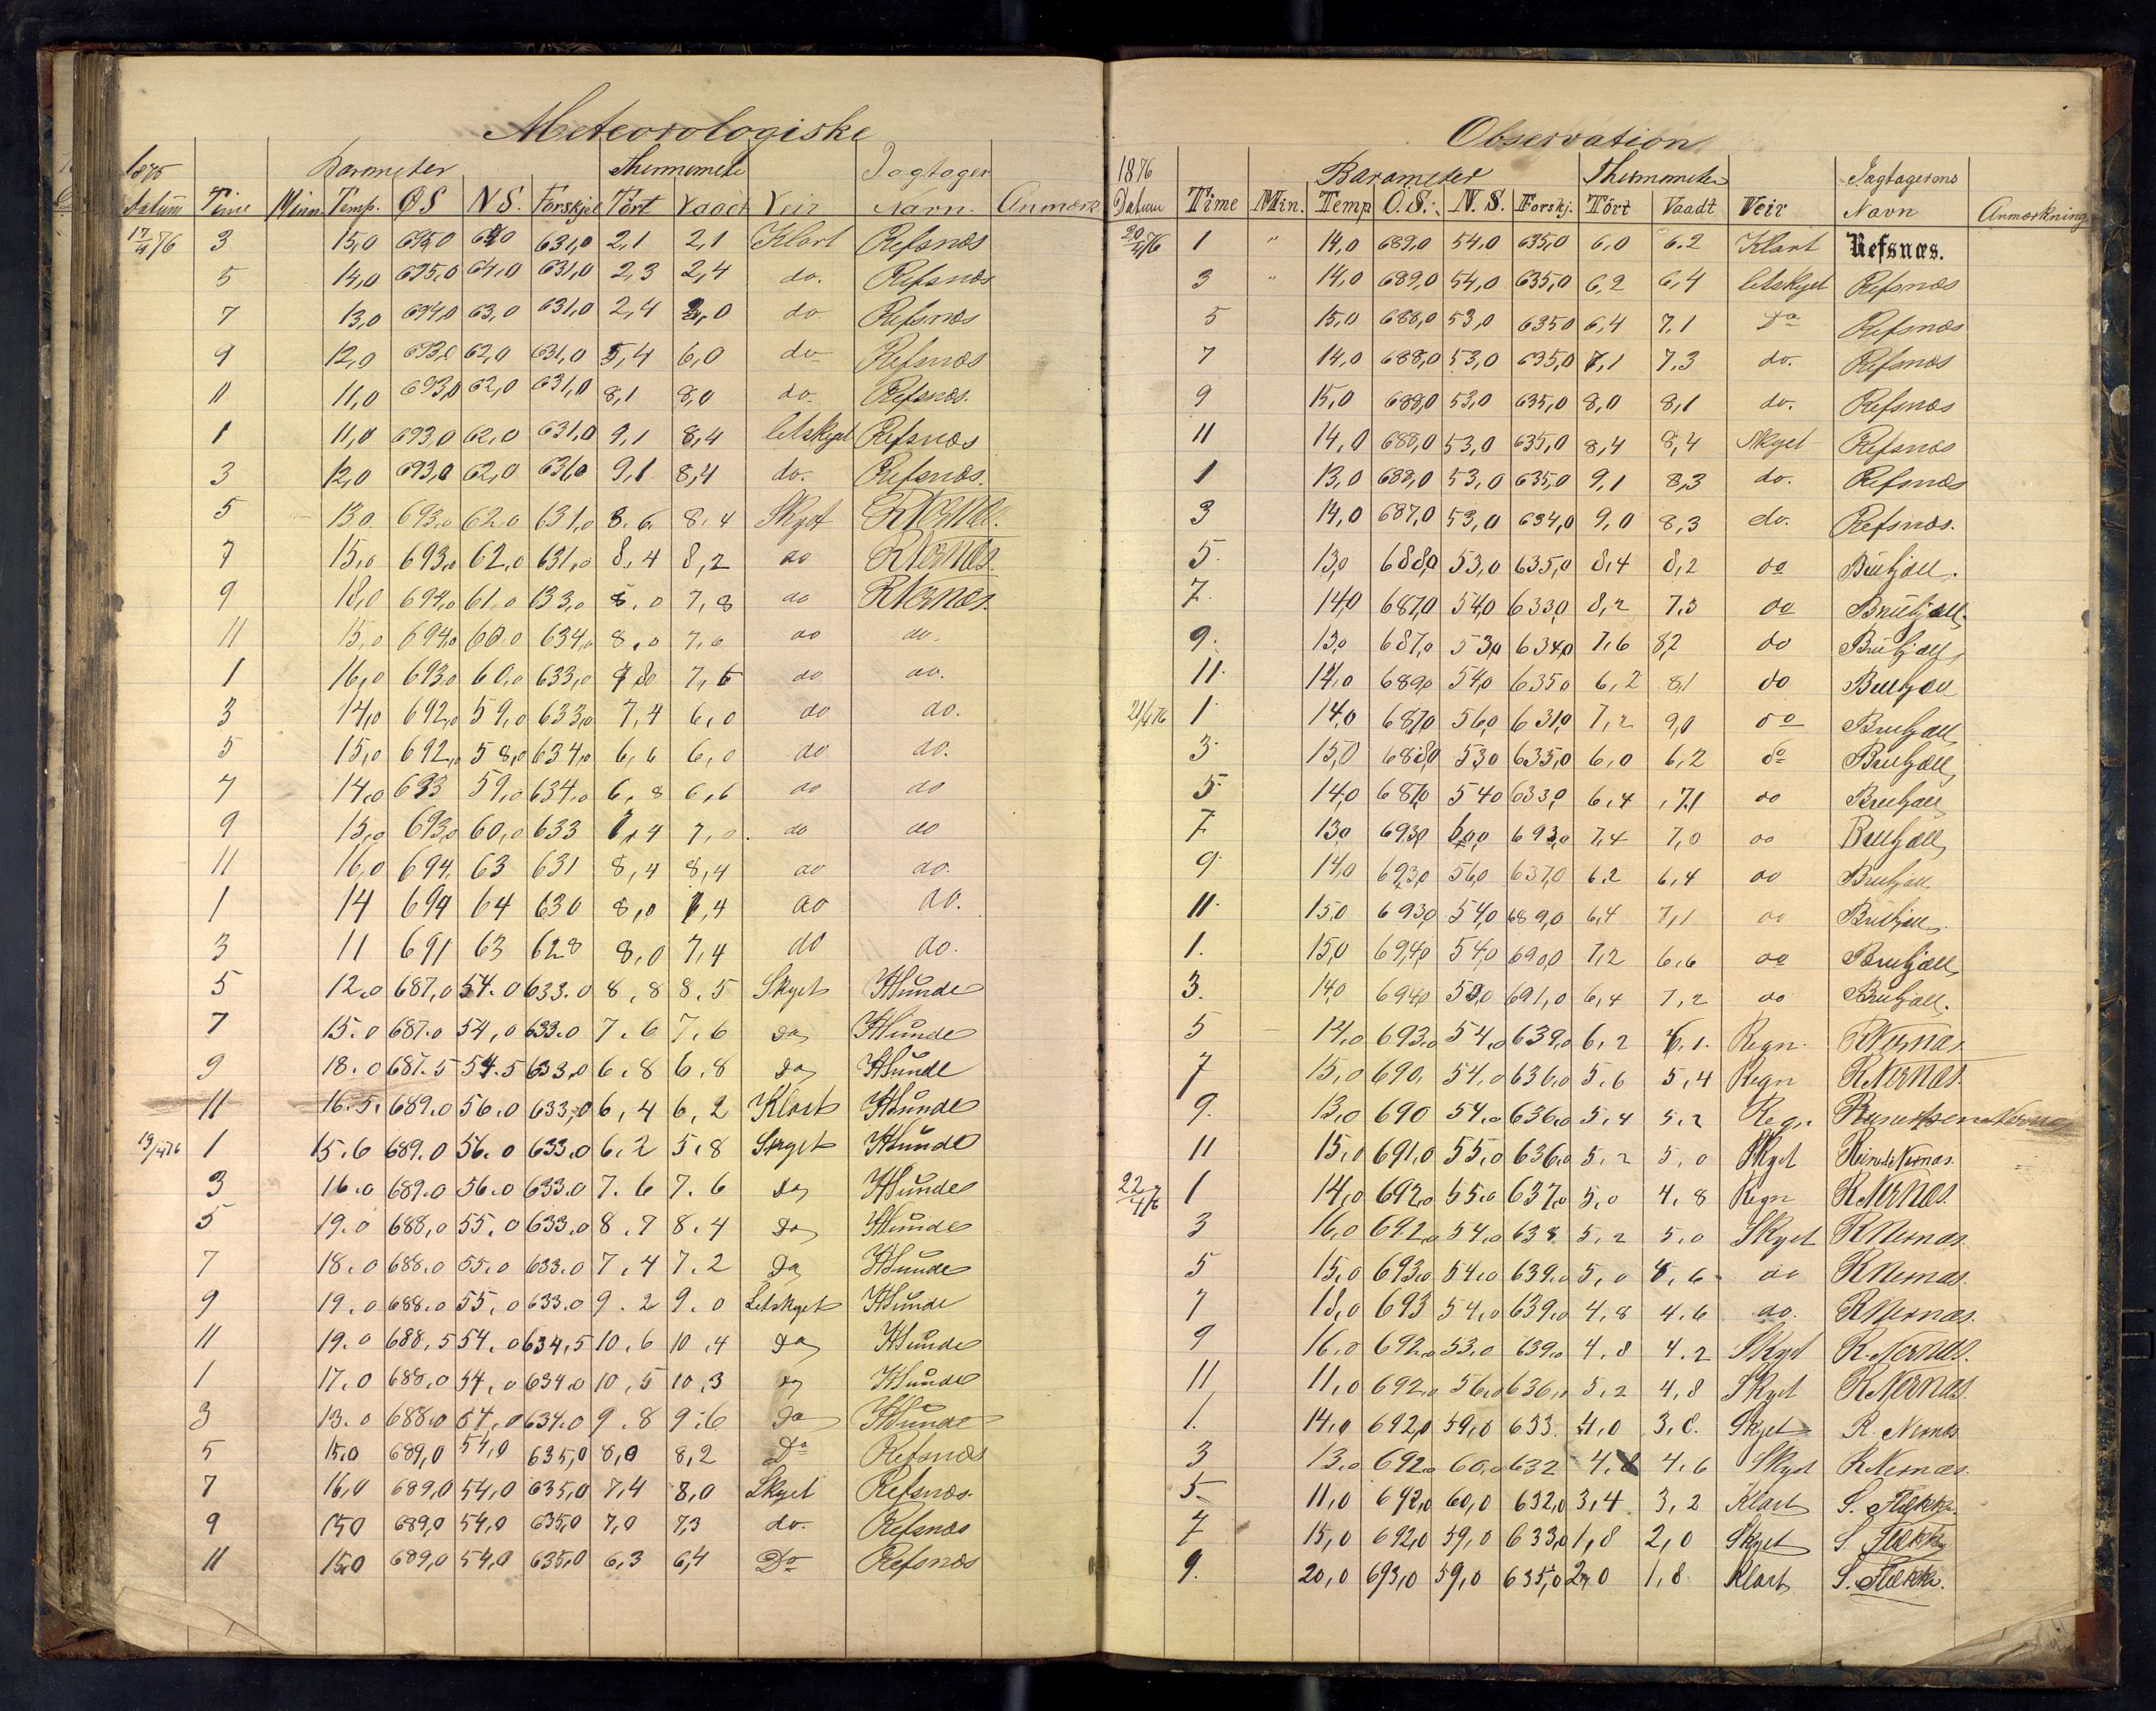 Meteorologiske
1876 Barometer Thermometer Jagtager
Datum Time Minn. Temp. ØS NS. Forskjel Tört Vaadt Veir Navn. Anmærk
17/4 76 3 15,0 695,0 64,0 631,0 2,1 2,1 Klart Refsnæs
5 14,0 695,0 64,0 631,0 2,3 2,4 do. Refsnæs
7 13,0 694,0 63,0 631,0 2,4 3,0 do Refsnæs
9 12,0 693,0 62,0 631,0 5,4 6,0 do Refsnæs
11 11,0 693,0 62,0 631,0 8,1 8,0 do. Refsnæs.
1 11,0 693,0 62,0 631,0 9,1 8,4 letskyet Refsnæs
3 12,0 693,0 62,0 631,0 9,1 8,4 do. Refsnæs.
5 13,0 693,0 62,0 631,0 8,6 8,4 Skyet RNernæs.
7 15,0 693,0 62,0 631,0 8,4 8,2 do RNernæs.
9 18,0 694,0 61,0 133,0 8,0 7,8 do RNernæs.
11 15,0 694,0 60,0 634,0 8,0 7,6 do do.
1 16,0 693,0 60,0 633,0 7,6 do do.
3 14,0 692,0 59,0 633,0 7,4 6,0 do do.
5 15,0 692,0 58,0 634,0 6,6 6,0 do do.
7 14,0 693 59,0 634,0 6,8 6,6 do do
9 15,0 693,0 60,0 633 7,4 7,0 do do
11 16,0 694, 63 631 8,4 8,4 do do.
1 14 694 64 630 8,0 7,4 do do.
3 11 691 63 628 8,0 7,4 do do.
5 12.0 687,0 54.0 633.0 8,8 8.5 Skyet HSunde
7 15.0 687.0 54,0 633.0 7.6 7.6 Do HSunde
9 18.0 687.5 54.5 633,0 6.8 6.8 Do HSunde
11 16.5. 689.0 56.0 633,0 6,4 6,2 Klart HSunde
19/4 76 1 15.6 689.0 56.0 633.0 6,2 5.8 Skyet HSunde
3 16.0 689.0 56.0 633.0 7.6 7.6 Do HSunde
5 19.0 688,0 55,0 633.0 8.7 8.4 Do HSunde
7 18.0 688.0 55.0 633.0 7.4 7.2 Do HSunde
9 19.0 688.0 55,0 633.0 9.2 9.0 Letskyet HSunde
11 19.0 688,5 54,0 634,5 10,6 10,4 Do HSunde
1 17.0 688,0 54,0 634.0 10,5 10,3 Do HSunde
3 13.0 688.0 54,0 634.0 9.8 9.6 Do HSunde
5 15,0 689,0 54,0 635,0 8,0 8,2 Do Refsnæs
7 16,0 689,0 54,0 635,0 7,4 8,0 Skyet Refsnæs.
9 15,0 689,0 54,0 635,0 7,0 7,3 do. Refsnæs
11 15,0 689,0 54,0 635,0 6,3 6,4 Do Refsnæs
Observation
1876 Barometer Thermometer Jagtagerens
Datum Time Min. Temp O.S. N.S. Forskj. Tört Vaadt Veir Navn Anmærkning
20/4 76 1 " 14,0 689,0 54,0 635,0 6,0 6.2 Klart Refsnæs.
3 " 14,0 689,0 54,0 635,0 6,2 6,4 letskyet Refsnæs
5 15,0 688,0 53,0 635,0 6,4 7,1 Do Refsnæs
7 14,0 688,0 53,0 635,0 7,1 7,3 do. Refsnæs
9 15,0 688,0 53,0 635,0 8,0 8,1 do. Refsnæs
11 14,0 688,0 53,0 635,0 8,4 8,4 Skyet Refsnæs
1 13,0 688,0 53,0 635,0 9,1 8,3 do. Refsnæs
3 14,0 687,0 53,0 634,0 9,0 8,3 do. Refsnæs.
5. 13,0 688,0 53,0 635,0 8,4 8,2 do
7. 14,0 687,0 54,0 633,0 8,2 7,3 do
9. 13,0 687,0 53,0 634,0 7,6 8,2 do
11. 14,0 689,0 54,0 635,0 6,2 8,1 do
21/4 76 1. 14,0 687,0 56,0 631,0 7,2 9,0 do
3. 15,0 688,0 53,0 635,0 6,0 6,2 do
5. 14,0 687,0 54,0 633,0 6,4 7,1 do
7. 13,0 693,0 60,0 693,0 7,4 7,0 do
9. 14,0 693,0 56,0 637,0 6,2 6,4 do
11. 15,0 693,0 54,0 689,0 6,4 7,1 do
1. 15,0 694,0 54,0 690,0 7,2 6,6 do
3. 14,0 694,0 53,0 691,0 6,4 7,2 do
5 14,0 693,0 54,0 639,0 6,2 6,1. Regn. RNernæs
7 15,0 690, 54,0 636,0 5,6 5,4 Regn RNernæs.
9. 13,0 690 54,0 636,0 5,4 5,2 Regn
11 15,0 691,0 55,0 636,0 5,2 5,0 Skyet Nernæs.
22/4 76 1 14,0 692,0 55,0 637,0 5,0 4,8 Regn RNernæs.
3 16,0 692,0 54,0 638 5,2 5,0 Skyet RNernæs.
5 15,0 693,0 54,0 639,0 5,0 8,6 do RNernæs.
7 18,0 693 54,0 639,0 4,8 4,6 do. RNernæs.
9 16,0 692,0 53,0 639,0 4,8 4,2 Skyet R.Nernæs.
11 11,0 692,0 56,0 636,0 5,2 4,8 Skyet RNernæs.
1. 14,0 692,0 59,0 633. 4,0 3,8. Skyet R. Nernæs
3 13,0 692,0 60,0 632 4,8 4,6 Skyet RNernæs.
5 11,0 692,0 60,0 632,0 3,4 3,2 Klart S. Flække.
7 15,0 692,0 59,0 633,0 1,8 2,0 Skyet S. Flække
9. 20,0 693,0 59,0 635,0 2,0 1,8 Klart S. Flække.